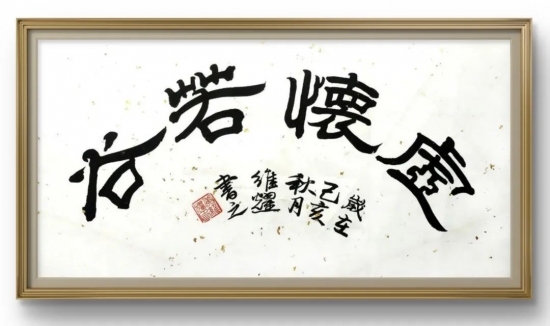 虛懷若谷
歲在
己亥
秋月
維躍
書之